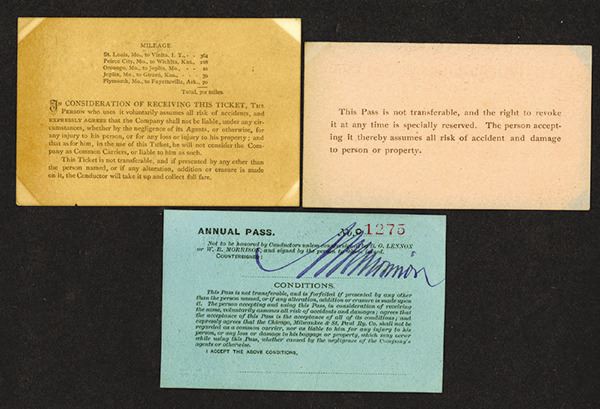 MILEAGE
St. Louis, Mo., to Vinita, I. T., - - 364
Peirce City, Mo., to Wichita, Kan., 218
Oronogo, Mo., to Joplin, Mo., - - 10
Joplin, Mo., to Girard, Kan., - - 39
Plymouth, Mo., to Fayetteville, Ark., 70
Total, 701 miles.
IN CONSIDERATION OF RECEIVING THIS TICKET, THE
PERSON who uses it voluntarily assumes all risk of accidents, and
EXPRESSLY AGREES that the Company shall not be liable, under any cir-
cumstances, whether by the negligence of its Agents, or otherwise, for
any injury to his person, or for any loss or injury to his property; and
that as for him, in the use of this Ticket, he will not consider the Com-
pany as Common Carriers, or liable to him as such.
This Ticket is not transferable, and if presented by any other than
the person named, or if any alteration, addition or erasure is made
on it, the Conductor will take it up and collect full fare.
This Pass is not transferable, and the right to revoke
it at any time is specially reserved. The person accept-
ing it thereby assumes all risk of accident and damage
to person or property.
ANNUAL PASS. No. 1275
Not to be honored by Conductors unless countersigned by G. O. LENNOX
or W. R. MORRISON and signed by the person to whom issued.
COUNTERSIGNED:
CONDITIONS.
This Pass is not transferable, and is forfeited if presented by any other
than the person named, or if any alteration, addition or erasure is made upon
it. The person accepting and using this Pass, in consideration of receiving
the same, voluntarily assumes all risk of accidents and damages; agrees that
the acceptance of this Pass is the acceptance of all of its conditions; and
expressly agrees that the Chicago, Milwaukee & St. Paul Ry. Co. shall not be
regarded as a common carrier, nor as liable to him for any injury to his
person, or any loss or damage to his baggage or property, which may occur
while using this Pass, whether caused by the negligence of the Company's
agents or otherwise.
I ACCEPT THE ABOVE CONDITIONS,